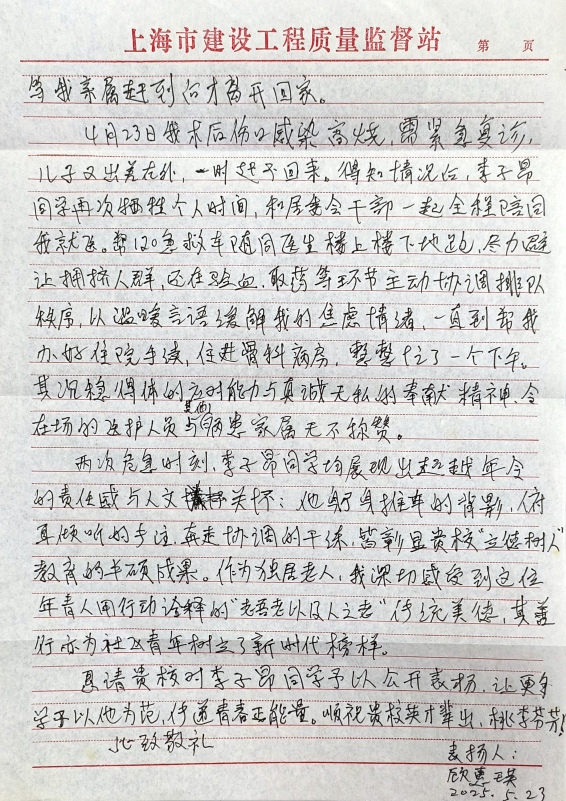 上海市建设工程质量监督站
第 页
等我亲属赶到后才离开回家。
4月23日我术后伤口感染高烧，需紧急复诊，
儿子又出差在外，一时赶不回来。得知情况后，李子昂
同学再次牺牲个人时间，和居委会干部一起全程陪同
我就医。帮120急救车随同医生楼上楼下地跑，尽力避
让拥挤人群，还在验血、取药等环节主动协调排队
秩序，以温暖言语缓解我的焦虑情绪，一直到帮我
办好住院手续，住进骨科病房，整整忙了一个下午。
其沉稳得体的应对能力与真诚无私的奉献精神，令
在场的医护人员与其他病患家属无不称赞。
两次危急时刻，李子昂同学均展现出超越年令
的责任感与人文关怀：他躬身推车的背影，俯
耳倾听的专注，奔走协调的干练，皆彰显贵校“立德树人”
教育的丰硕成果。作为独居老人，我深切感受到这位
年青人用行动诠释的“老吾老以及人之老”传统美德，其善
行亦为社会青年树立了新时代榜样。
恳请贵校对李子昂同学予以公开表扬，让更多
学子以他为范，传递青春正能量。顺祝贵校英才辈出，桃李芬芳！
此致敬礼
表扬人：
顾惠瑛
2025.5.23